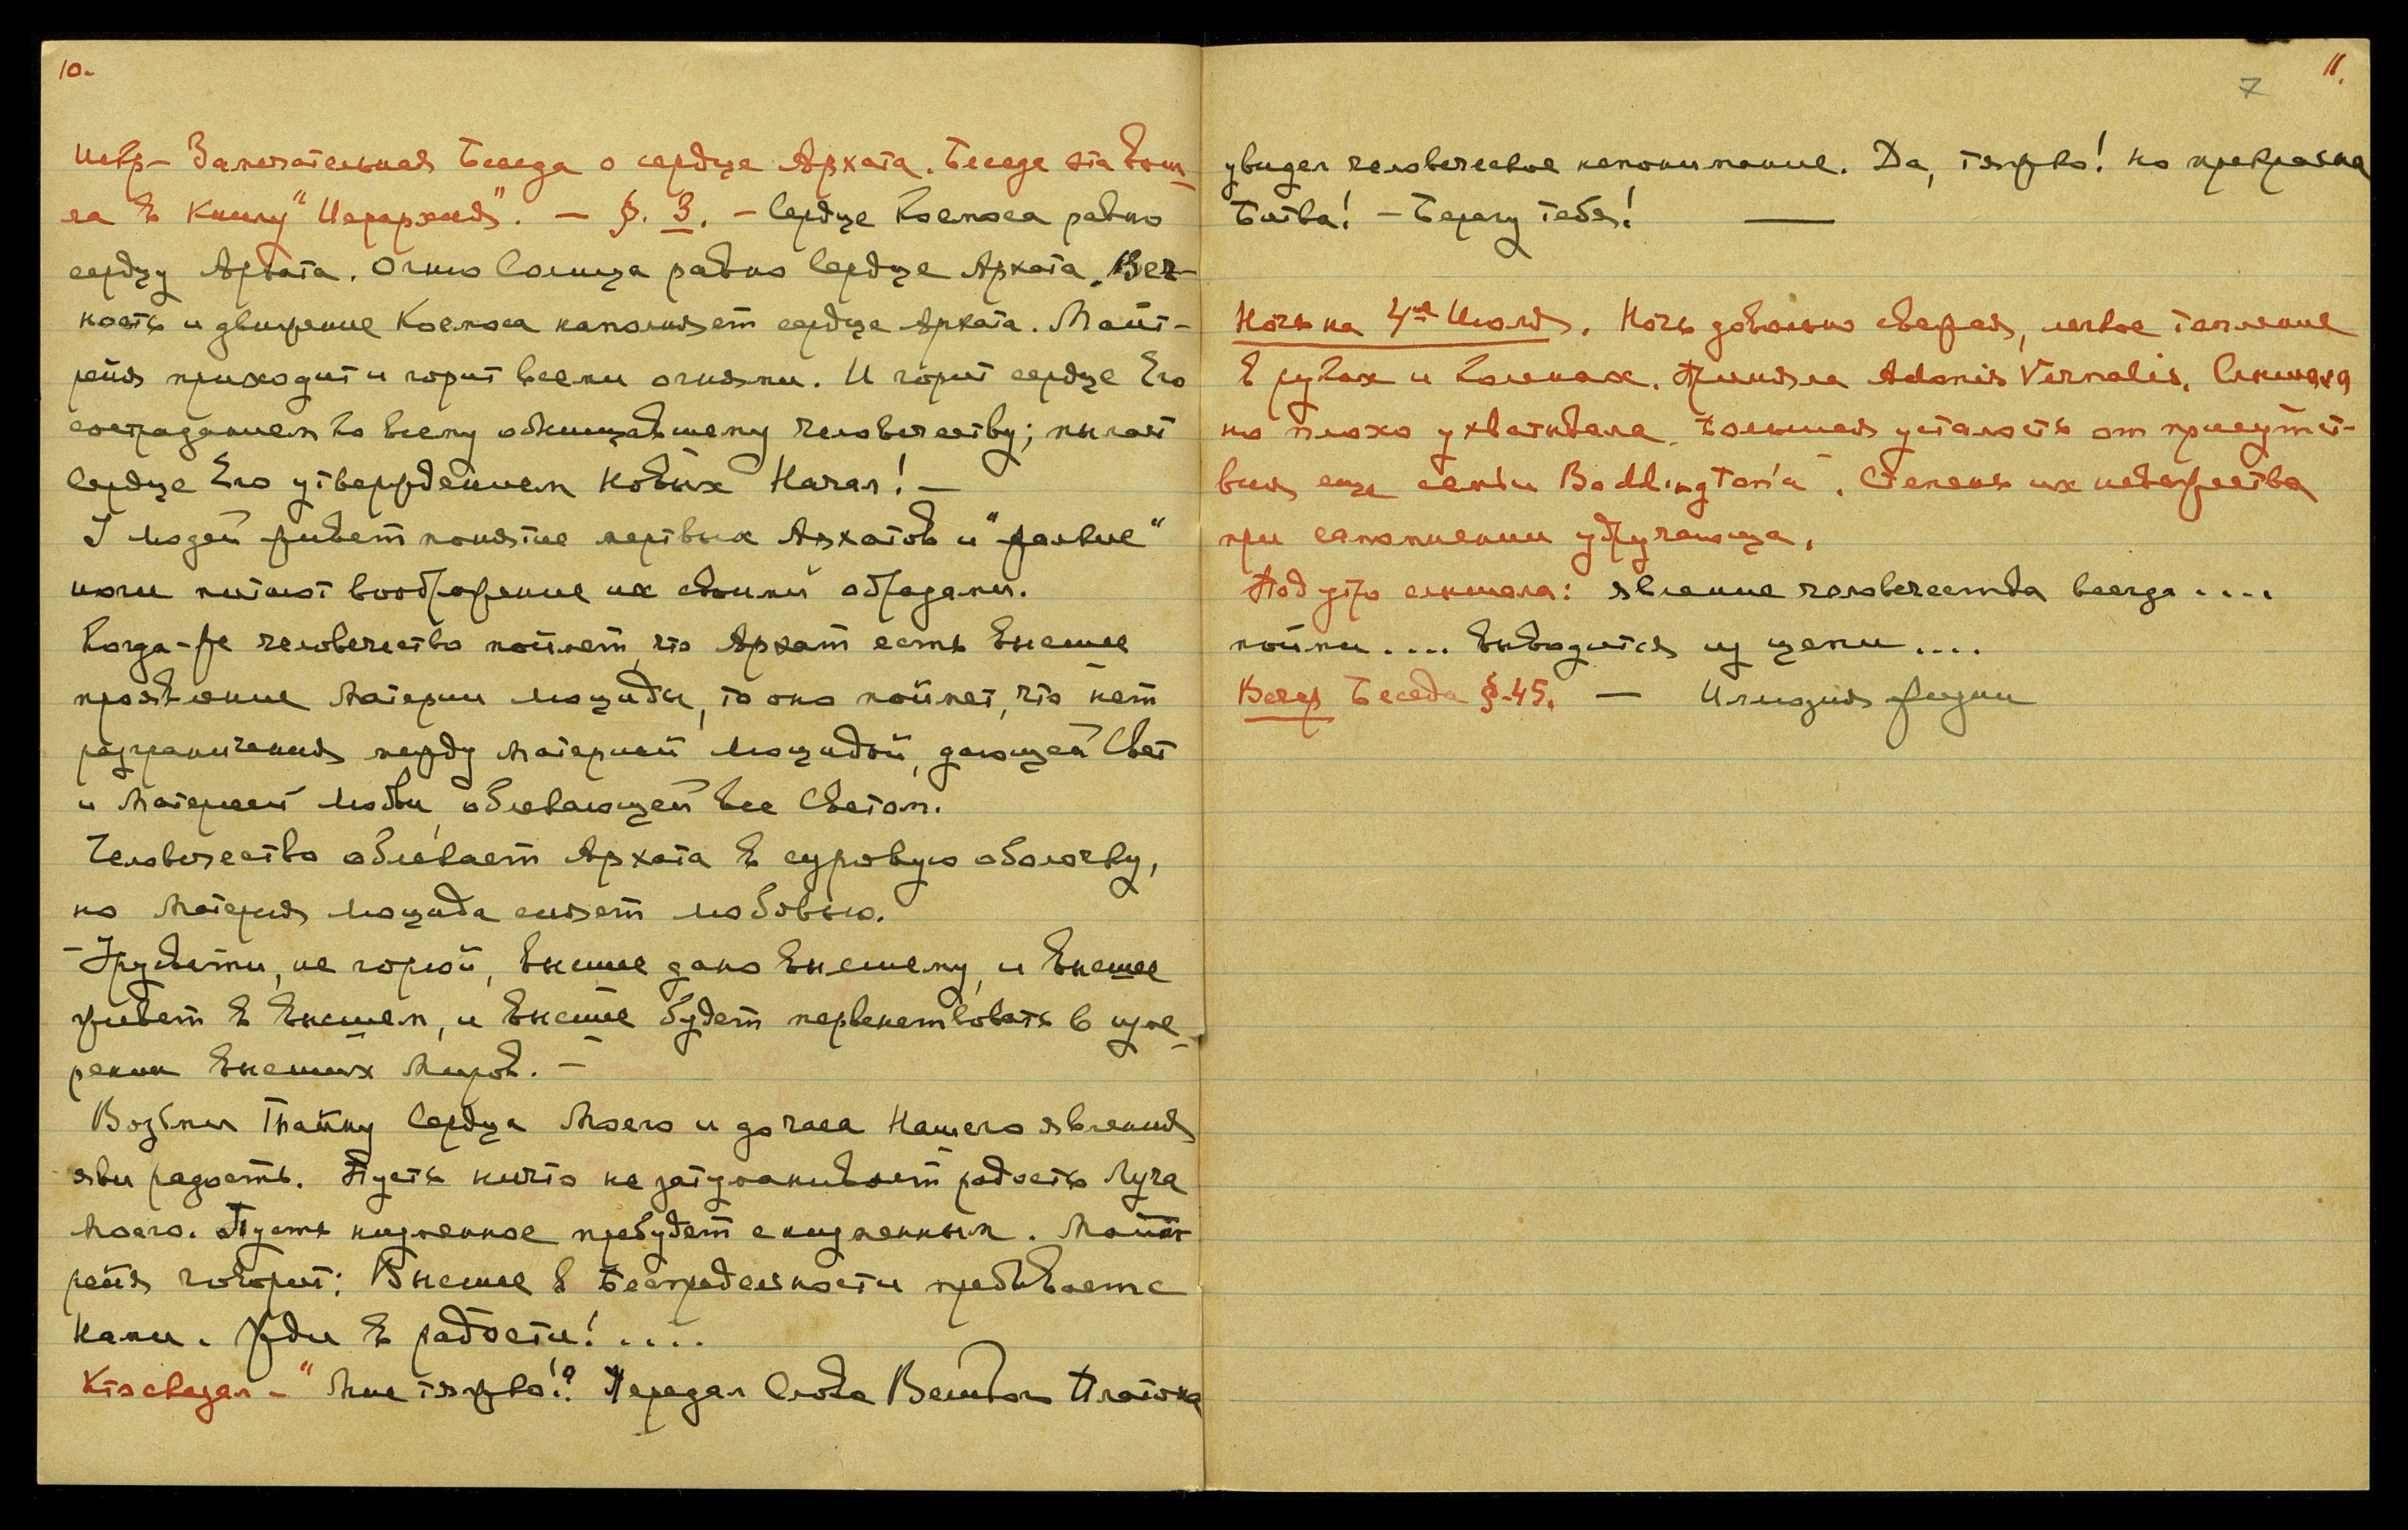 10.
Замечательная Беседа о сердце Архата. Беседа эта вош-
ла в книгу "Иерархия". — §. 3. — Сердце Космоса равно
сердцу Архата. Огню Солнца равно Сердце Архата. Веч-
ность и движение Космоса наполняет сердце Архата. Майт-
рейя приходит и горит всеми огнями. И горит сердце Его
состраданием ко всему обнищавшему человечеству; пылает
Сердце Его утверждением Новых Начал! —
У людей живет понятие мертвых Архатов и "жалкие"
йоги питают воображение их своими обрядами.
Когда-же человечество поймет, что Архат есть высшее
проявление Материи Люциды, то оно поймет, что нет
разграничения между Материей Люцидой, дающей Свет
и Материей Любви, облекающей все Светом.
Человечество облекает Архата в суровую оболочку,
но Материя Люцида сияет любовью.
— Урусвати, не горюй, высшее дано высшему, и высшее
живет в высшем, и высшее будет первенствовать в изме-
рении высших Миров. —
Возьми Тайну Сердца Моего и до часа Нашего явления
яви радость. Пусть ничто не затуманивает радость Луча
Моего. Пусть низменное пребудет с низменным. Майт-
рейя говорит: Высшее в Беспредельности пребывает с
Нами. Жди в радости! ....
Кто сказал — "Мне тяжко!? Передал Слова Великого Платона
11.
7
увидел человеческое непонимание. Да, тяжко! но прекрасна
Битва! — Берегу тебя! —
Ночь на 4ое Июля. Ночь довольно свежая, легкое томление
в руках и коленах. Приняла Adonis Vernalis. Слышала
но плохо ухватывала. Большая усталость от присутст-
вия еще семьи Boddington'а. Степень их невежества
при самомнении удручающа.
Под утро слышала: явление человечества всегда ....
пойми .... выводится из цепи ....
Вечер Беседа §.45. — Иллюзия жизни